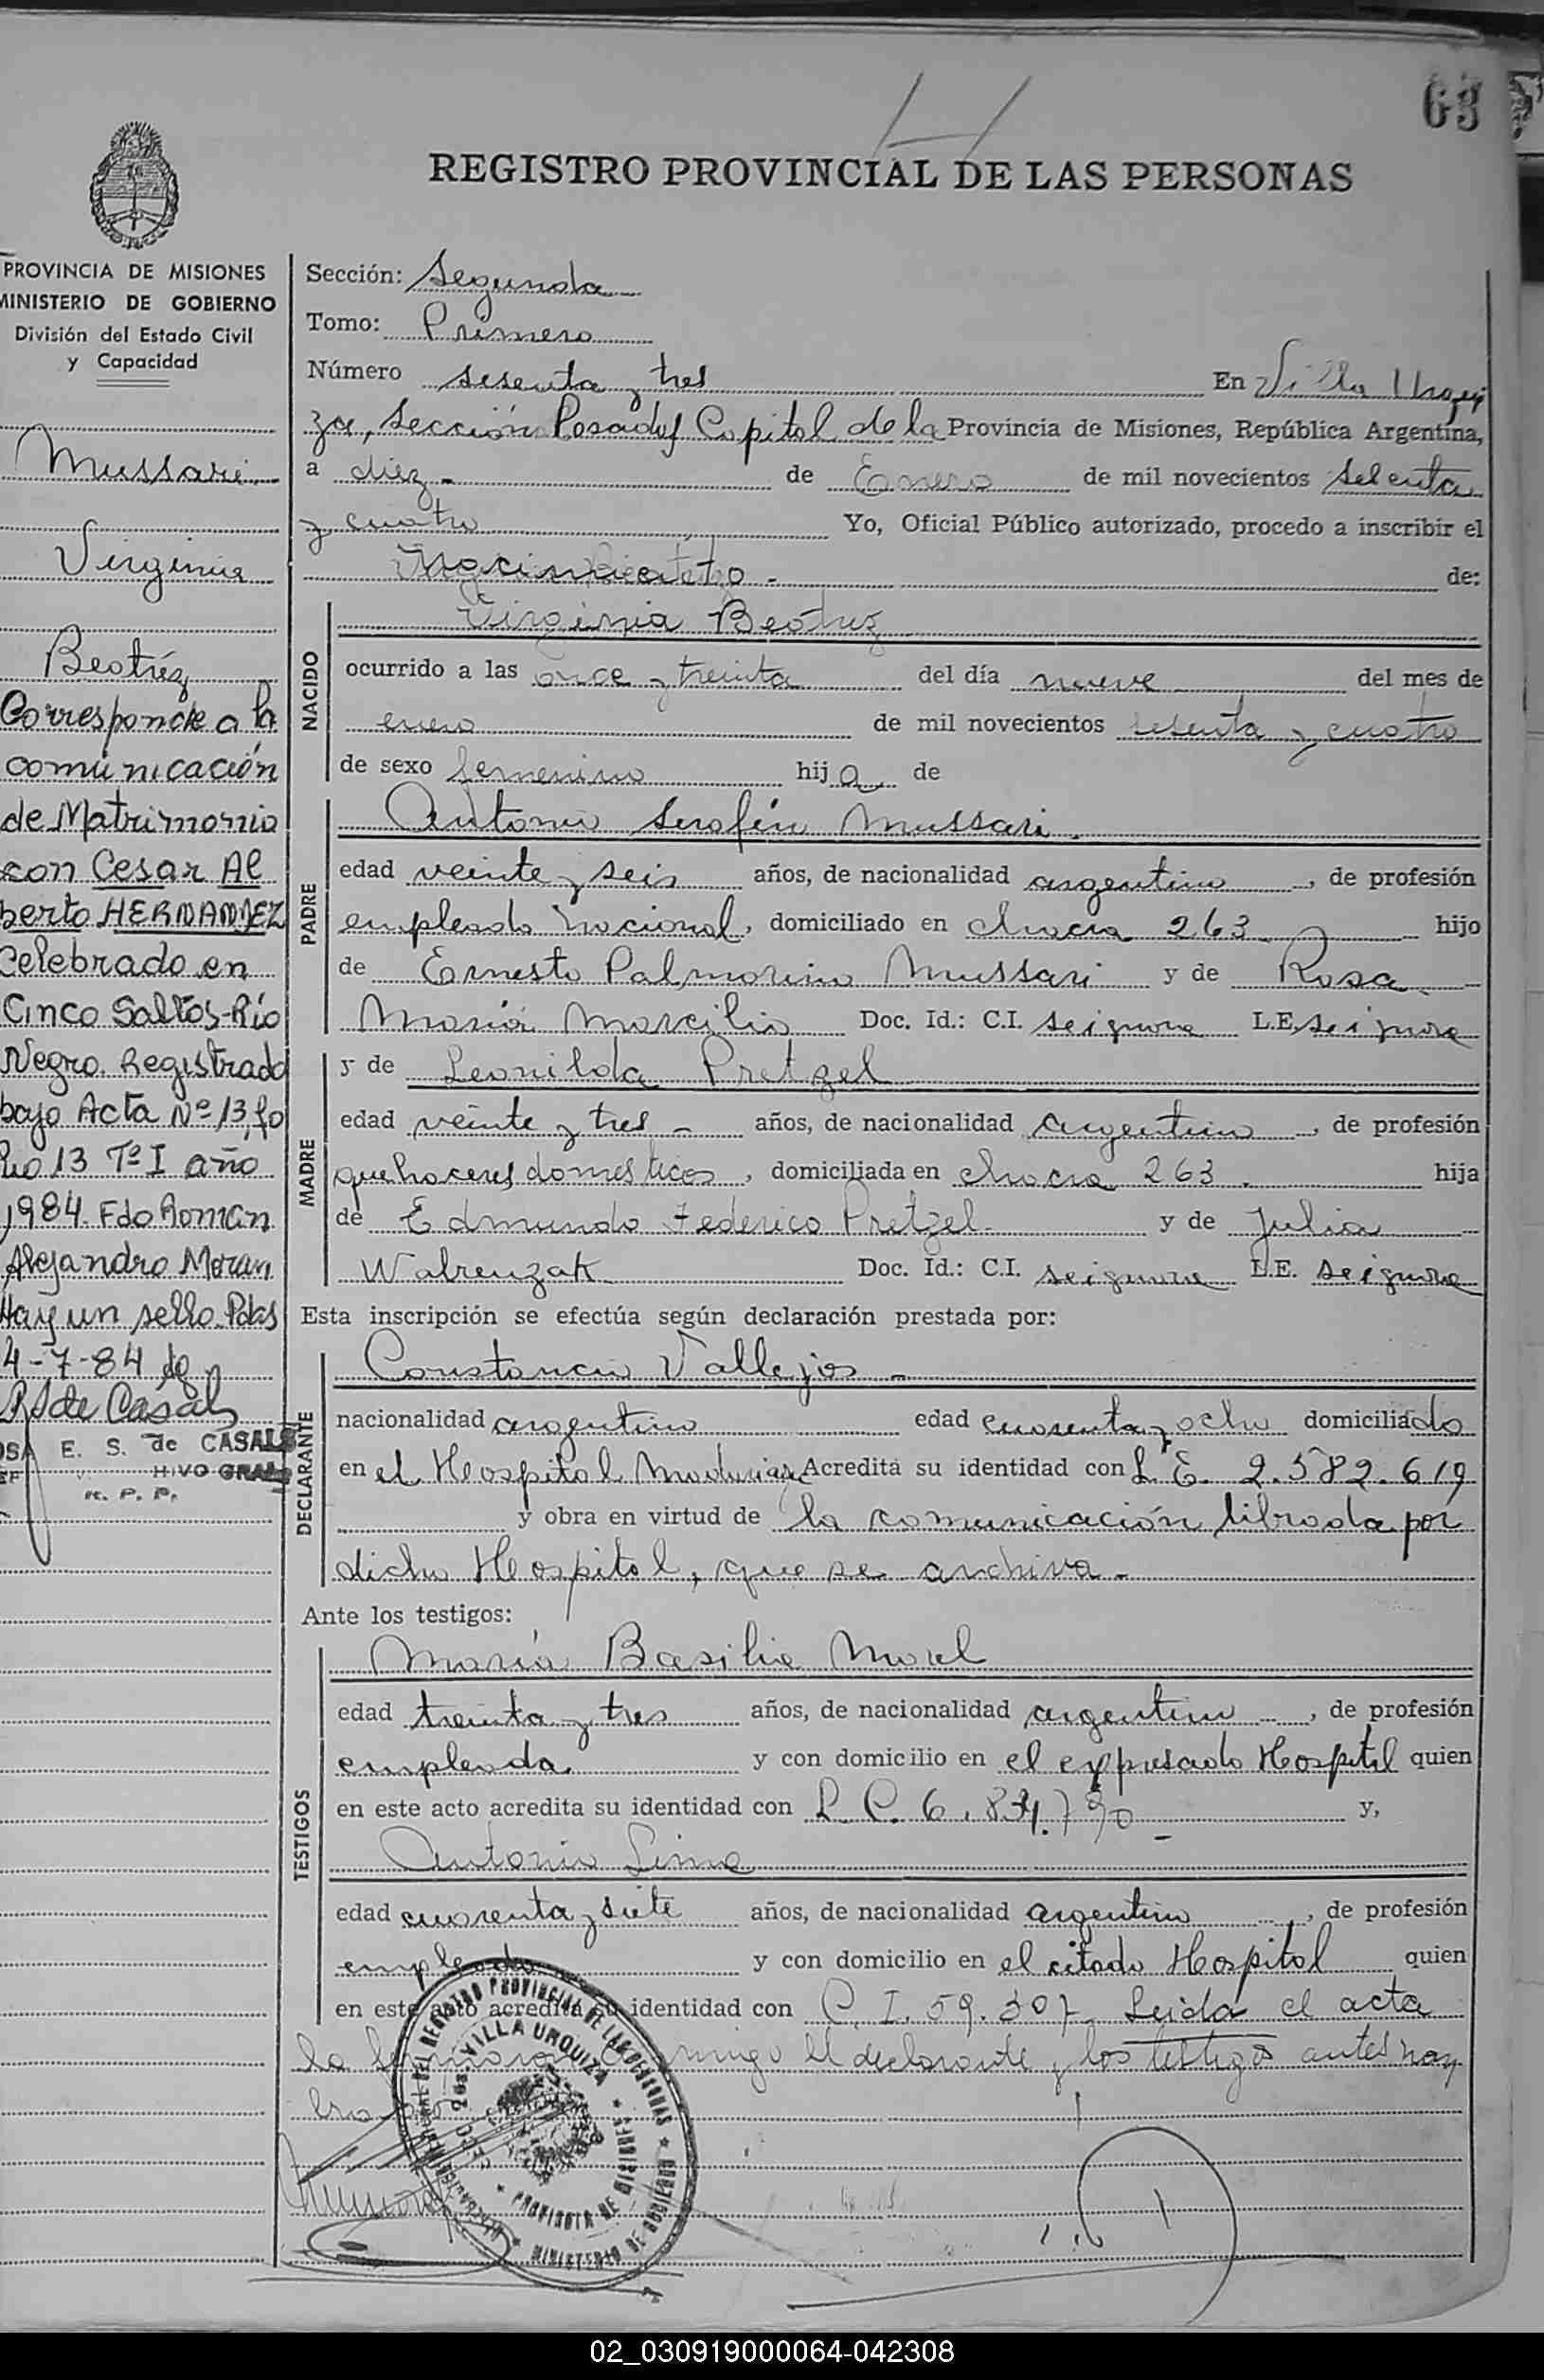 63
REGISTRO PROVINCIAL DE LAS PERSONAS
PROVINCIA DE MISIONES
MINISTERIO DE GOBIERNO
División del Estado Civil
y Capacidad
Mussari
Virginia
Beatríz
Corresponde a la
comunicación
de Matrimonio
con Cesar Al
berto HERNANDEZ
Celebrado en
Cinco Saltos-Río
Negro. Registrado
bajo Acta Nº 13, fo
lio 13 Tº I año
1984. Fdo Roman
Alejandro Moran
Hay un sello. Pdas
4-7-84
RS de Casals
E. S. de CASALS
R. P. P.
Sección: Segunda
Tomo: Primero
Número sesenta y tres En Villa Urqui
za, Sección Posadas Capital de la Provincia de Misiones, República Argentina,
a diez de Enero de mil novecientos setenta
y cuatro Yo, Oficial Público autorizado, procedo a inscribir el
Nacimiento de:
NACIDO
Virginia Beatriz
ocurrido a las once y treinta del día nueve del mes de
enero de mil novecientos setenta y cuatro
de sexo femenino hija de
PADRE
Antonio Serafín Mussari.
edad veinte y seis años, de nacionalidad argentino, de profesión
empleado nacional, domiciliado en chacra 263 hijo
de Ernesto Palmorino Mussari y de Rosa
María Marcilio Doc. Id.: C.I. se ignora L.E. se ignora
MADRE
y de Leonilda Pretzel
edad veinte y tres - años, de nacionalidad argentina, de profesión
quehaceres domesticos, domiciliada en chacra 263. hija
de Edmundo Federico Pretzel y de Julia
Walrenzak Doc. Id.: C.I. se ignora L.E. se ignora
Esta inscripción se efectúa según declaración prestada por:
DECLARANTE
Constancio Vallejos -
nacionalidad argentino edad cuarenta y ocho domiciliado
en el Hospital Acredita su identidad con L. E. 2.582.619
y obra en virtud de la comunicación librada por
dicho Hospital, que se archiva.
Ante los testigos:
TESTIGOS
María Basilia Morel
edad treinta y tres años, de nacionalidad argentina, de profesión
empleada y con domicilio en el expresado Hospital quien
en este acto acredita su identidad con L. C. y,
Antonio Lima
edad cuarenta y siete años, de nacionalidad argentino, de profesión
empleado y con domicilio en el citado Hospital quien
en este acto acredita su identidad con C. I. 59.307. Leida el acta
la el declarante y los testigos antes nom
brados
VILLA URQUIZA
02_030919000064-042308